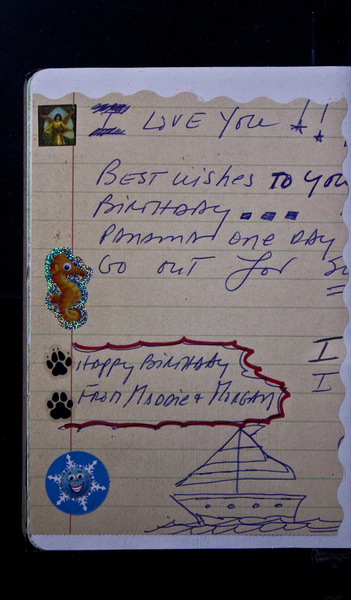 I LOVE YOU !!
BEST wishes TO YOU
BIRTHDAY ...
PANAMA ONE DAY
GO OUT for
I
I
HAPPY BIRTHDAY
FROM MADDIE & MORGAN